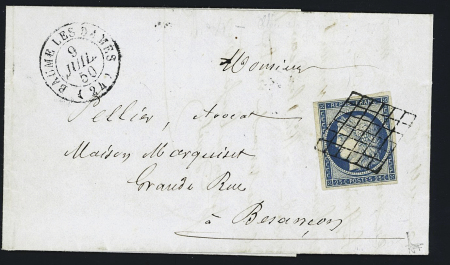 BAUME LES DAMES
9
JUIL.
50
(24)
Monsieur
Pellier, Avocat
Maison Marquiset
Grande Rue
à Besançon
REPUB FRANC
25 C POSTES 25 C